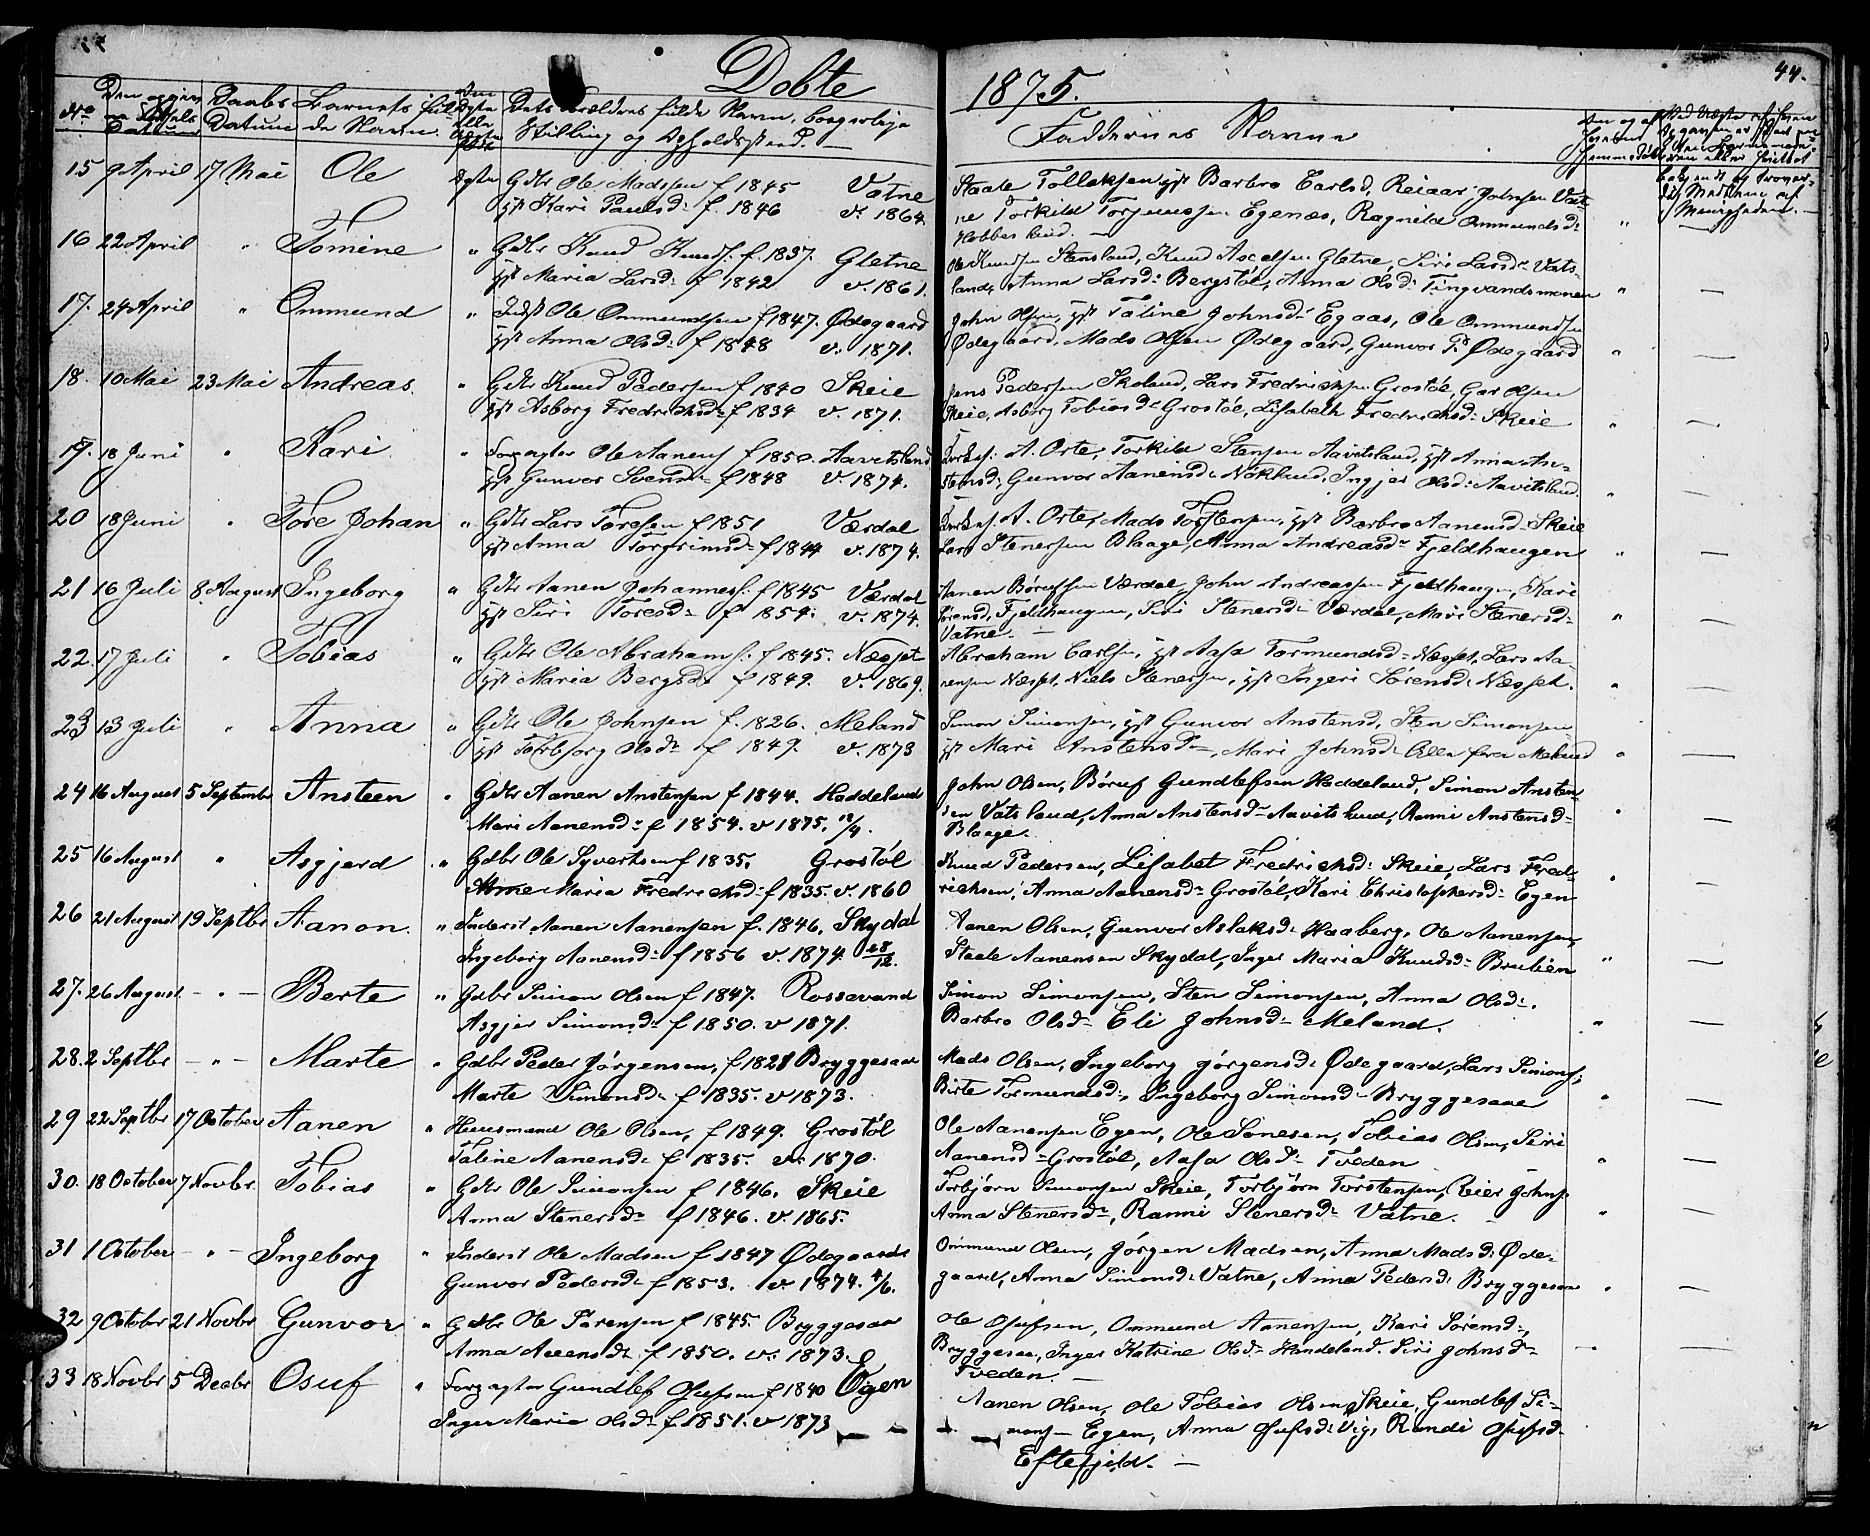 Døbte
1875.
44.
No
Daabs Datum
Barnets fulde Navn.
Faddernes Navne
15 9 April 17 Mai Ole Ægte Gdbr Ole Madssen f 1845 Vatne
gft Kari Paulsd: f. 1846 v. 1864.
Staale Tollaksen gft Barbro Carlsd, Reiaar Johnsen Vat-
ne Torkild Egenæs, Ragnild Ommundsd:
16 22 April " Tomine " Gdbr Knud Knuds: f. 1837. Gletne
gft Maria Larsd: f 1842 v. 1861.
Ole Knudsen Stensland, Knud Gletne, Siri Larsd: Vats-
land, Anna Larsd: Bergstøl, Anna Olsd: Tingvandsmonen
17. 24 April " Ommund " Inderst Ole Ommundsen f 1847. Ødegaard
gft Anna Olsd: f 1848 v. 1871.
John Olsen, gft Taline Johnsd: Egaas, Ole Ommundsen
Ødegaard, Mads Olsen Ødegaard, Gunvor P. Ødegaard
18. 10 Mai 23 Mai Andreas. " Gdbr Knud Pedersen f 1840 Skeie
gft Asborg Fredrichsd: f 1834 v. 1871.
Jens Pedersen Skoland, Lars Fredrichsen Grostøl,
Skeie, Asborg Tobiasd: Grostøl, Lisabeth Fredrichsd: Skeie
19. 18 Juni " Kari " Forpagter Ole Aanens f 1850. Aavitsland
gft Gunvor Svends: f 1848 v. 1874.
A. Orte, Torkild Stensen Aavitsland, gft Anna An-
stensd; Gunvor Aanensd: Ingjer Olsd: Aavitsland.
20 18 Juni " Tore Johan " Gdbr Lars Toresen f 1851 Værdal
gft Anna Torgrimsd: f 1844 v. 1874.
A. Orte, Mads Torstensen, gft Barbro Aanensd: Skeie
Lars Stenersen Blaage, Anna Andreasd: Fjeldhaugen
21 16 Juli 8 August Ingeborg " Gdbr Aanen Johannes: f 1845 Værdal
gft Siri Toresd: f 1854. v. 1874.
Aanen Børufsen Værdal, John Andreassen Fjeldhaugen, Kari
Sørensd, Fjeldhaugen, Siri Stenersd: Værdal, Mari Stenersd:
Vatne. —
22. 17 Juli " Tobias " Gdbr Ole Abrahams: f 1845. Næsset
gft Maria Bergsd: f 1849. v. 1869.
Abraham Carlsen, gft Aasa Tormundsd: Næsset, Lars Aa-
nensen Næsset, Niels Stenersen, gft Ingeri Sørensd: Næsset.
23 13 Juli " Anna " Gdbr Ole Johnsen f. 1826. Meland
gft Torbjorg Olsd: f 1849. v. 1873
Simon Simonsen, gft Gunvor Anstensd, Sten Simonsen
gft Mari Anstensd:, Mari Johnsd: Alle fra Meland
24 16 August 5 September Ansteen " Gdbr Aanen Anstensen f 1844. Haddeland
Mari Aanensd: f 1854. v 1875.
John Olsen, Børuf Gundlefsen Haddeland, Simon Ansten-
sen Vatsland, Anna Anstensd: Aavitsland, Ranni Anstensd:
Blaage.
25 16 August " Asgjerd " Gdbr Ole Syvertsen f 1835. Grostøl
Anne Maria Fredrichsd: f 1835. v. 1860
Knud Pedersen, Lisabet Fredrichsd: Skeie, Lars Fred-
richsen, Anna Aanensd: Grostøl, Kari Christophersd: Egen
26 21 August 19 Septbr Aanon. " Inderst Aanen Aanensen f. 1846. Skydal
Ingeborg Aanensd: f 1856 v. 1874 28/12.
Aanen Olsen, Gunvor Aslaksd: Haaberg, Ole Aanensen,
Staale Aanensen Skydal, Inger Maria Knudsd: Brulien
27. 26 August — " — Berte " Gdbr Simon Olsen f 1847. Rossevand
Asgjer Simonsd: f 1850. v 1871.
Simon Simonsen, Sten Simonsen, Anna Olsd:.
Barbro Olsd: Eli Johnsd: Meland.
28. 2 Septbr — " — Marte " Gdbr Peder Jørgensen, f 1828 Bryggesaa
Marte Simonsd: f 1835. v 1873.
Mads Olsen, Ingeborg Jørgensd: Ødegaard, Lars Simons;
Birte Tormundsd:, Ingeborg Simonsd: Bryggesaa
29 22 Septbr 17 October Aanen " Huusmand Ole Olsen, f 1849. Grostøl
Taline Aanensd: f 1835. v. 1870.
Ole Aanensen Egen, Ole Sonesen, Tobias Olsen, Siri
Aanensd: Grostøl, Aasa Olsd: Tveden
30. 18 October 7 Novbr. Tobias " Gdbr Ole Simonsen f 1846. Skeie
Anna Stenersd: f 1846. v. 1865.
Torbjørn Simonsen Skeie, Torbjørn Torstensen, Reier Johns:
Anna Stenersd:, Ranni Stenersd: Vatne.
31 1 October — " — Ingeborg " Inderst Ole Madsen f 1847 Ødegaard
Gunvor Pedersd: f 1853. v. 1874. 4/6.
Ommund Olsen, Jørgen Madsen, Anna Madsd: Øde-
gaard, Anna Simonsd: Vatne, Anna Pedersd: Bryggesaa
32 9 October 21 Novbr Gunvor " Gdbr Ole Sørensen f 1845. Bryggesaa
Anna f 1850. v. 1873.
Ole Osufsen, Ommund Aanensen, Kari Sørensd:,
Bryggesaa, Inger Katrine Olsd: Handeland. Siri Johnsd:
Tveden. —
33 18 Novbr 5 Decbr Osuf " Forpagter Gundlef Osufsen f 1840 Egen
Inger Maria Olsd: f 1851. v 1873
Aanen Olsen, Ole Tobias Olsen Skeie, Gundlef Si-
mons: Egen, Anna Osufsd: Vigs Randi Osufsd:
Eftefjeld. —